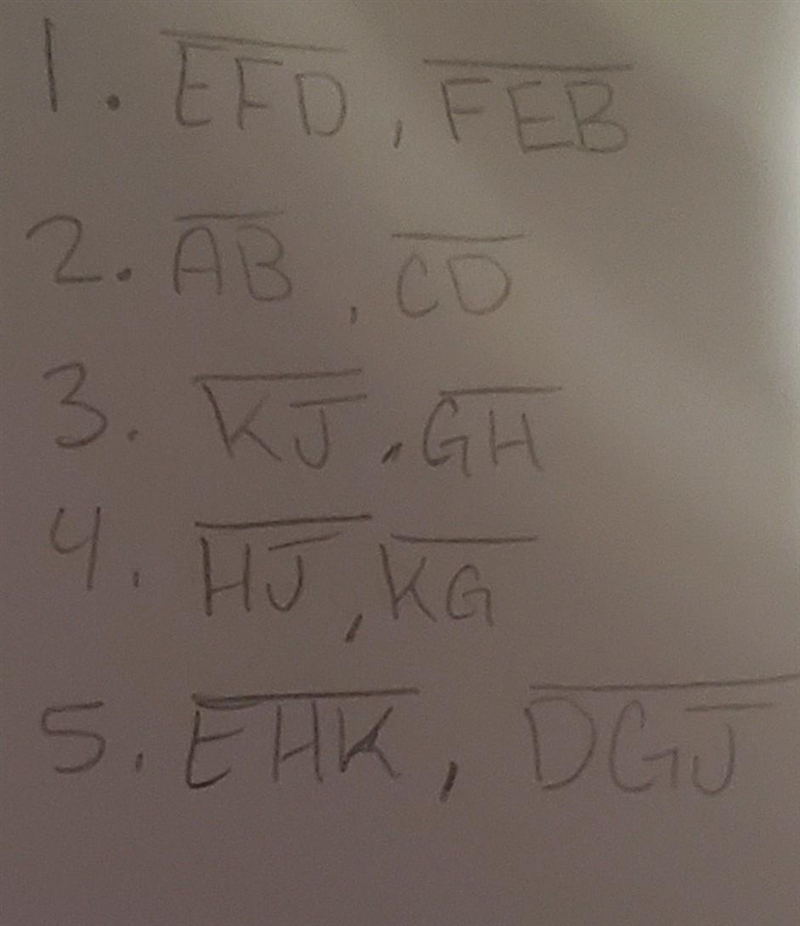 1. E̅F̅D̅, F̅E̅B̅
2. A̅B̅, C̅D̅
3. K̅J̅, G̅H̅
4. H̅J̅, K̅G̅
5. E̅H̅K̅, D̅G̅J̅